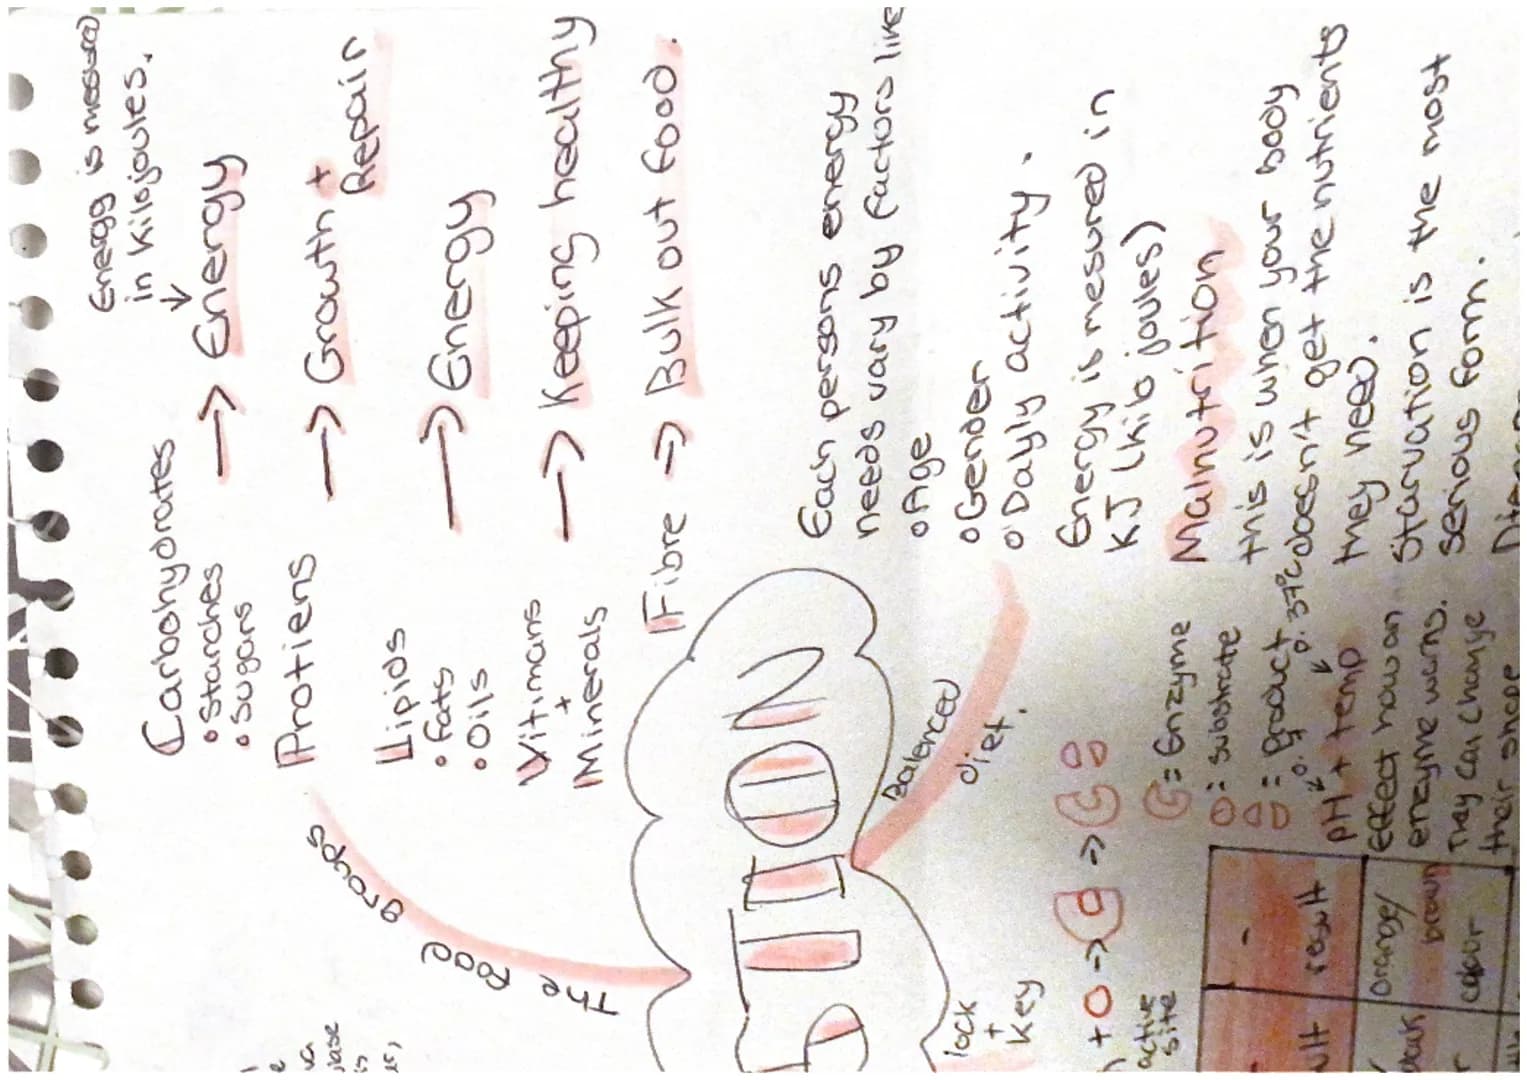 Energy is mesured
in kilojoules.
↓
Carbohydrates → Energy
• Starches
• Sugars
Protiens → Growth +
Repair
Lipids → Energy
• Fats
• Oils
Vitimans
+
Minerals → Keeping healthy
Fibre → Bulk out food.
The food groups
TION
Balenced
diet.
Each persons energy
needs vary by factors like
• Age
• Gender
• Dayly activity.
Energy is mesured in
KJ (kilo joules)
Malnutrition
this is when your body
doesn't get the nutrients
they need.
Starvation is the most
serious form.
lock
+
key
+ → →
active
site
= Enzyme
= substrate
= product
o. o. 37°C
pH + temp
effect how an
enzyme works.
They can change
their shape
- result
orange/
brown
colour